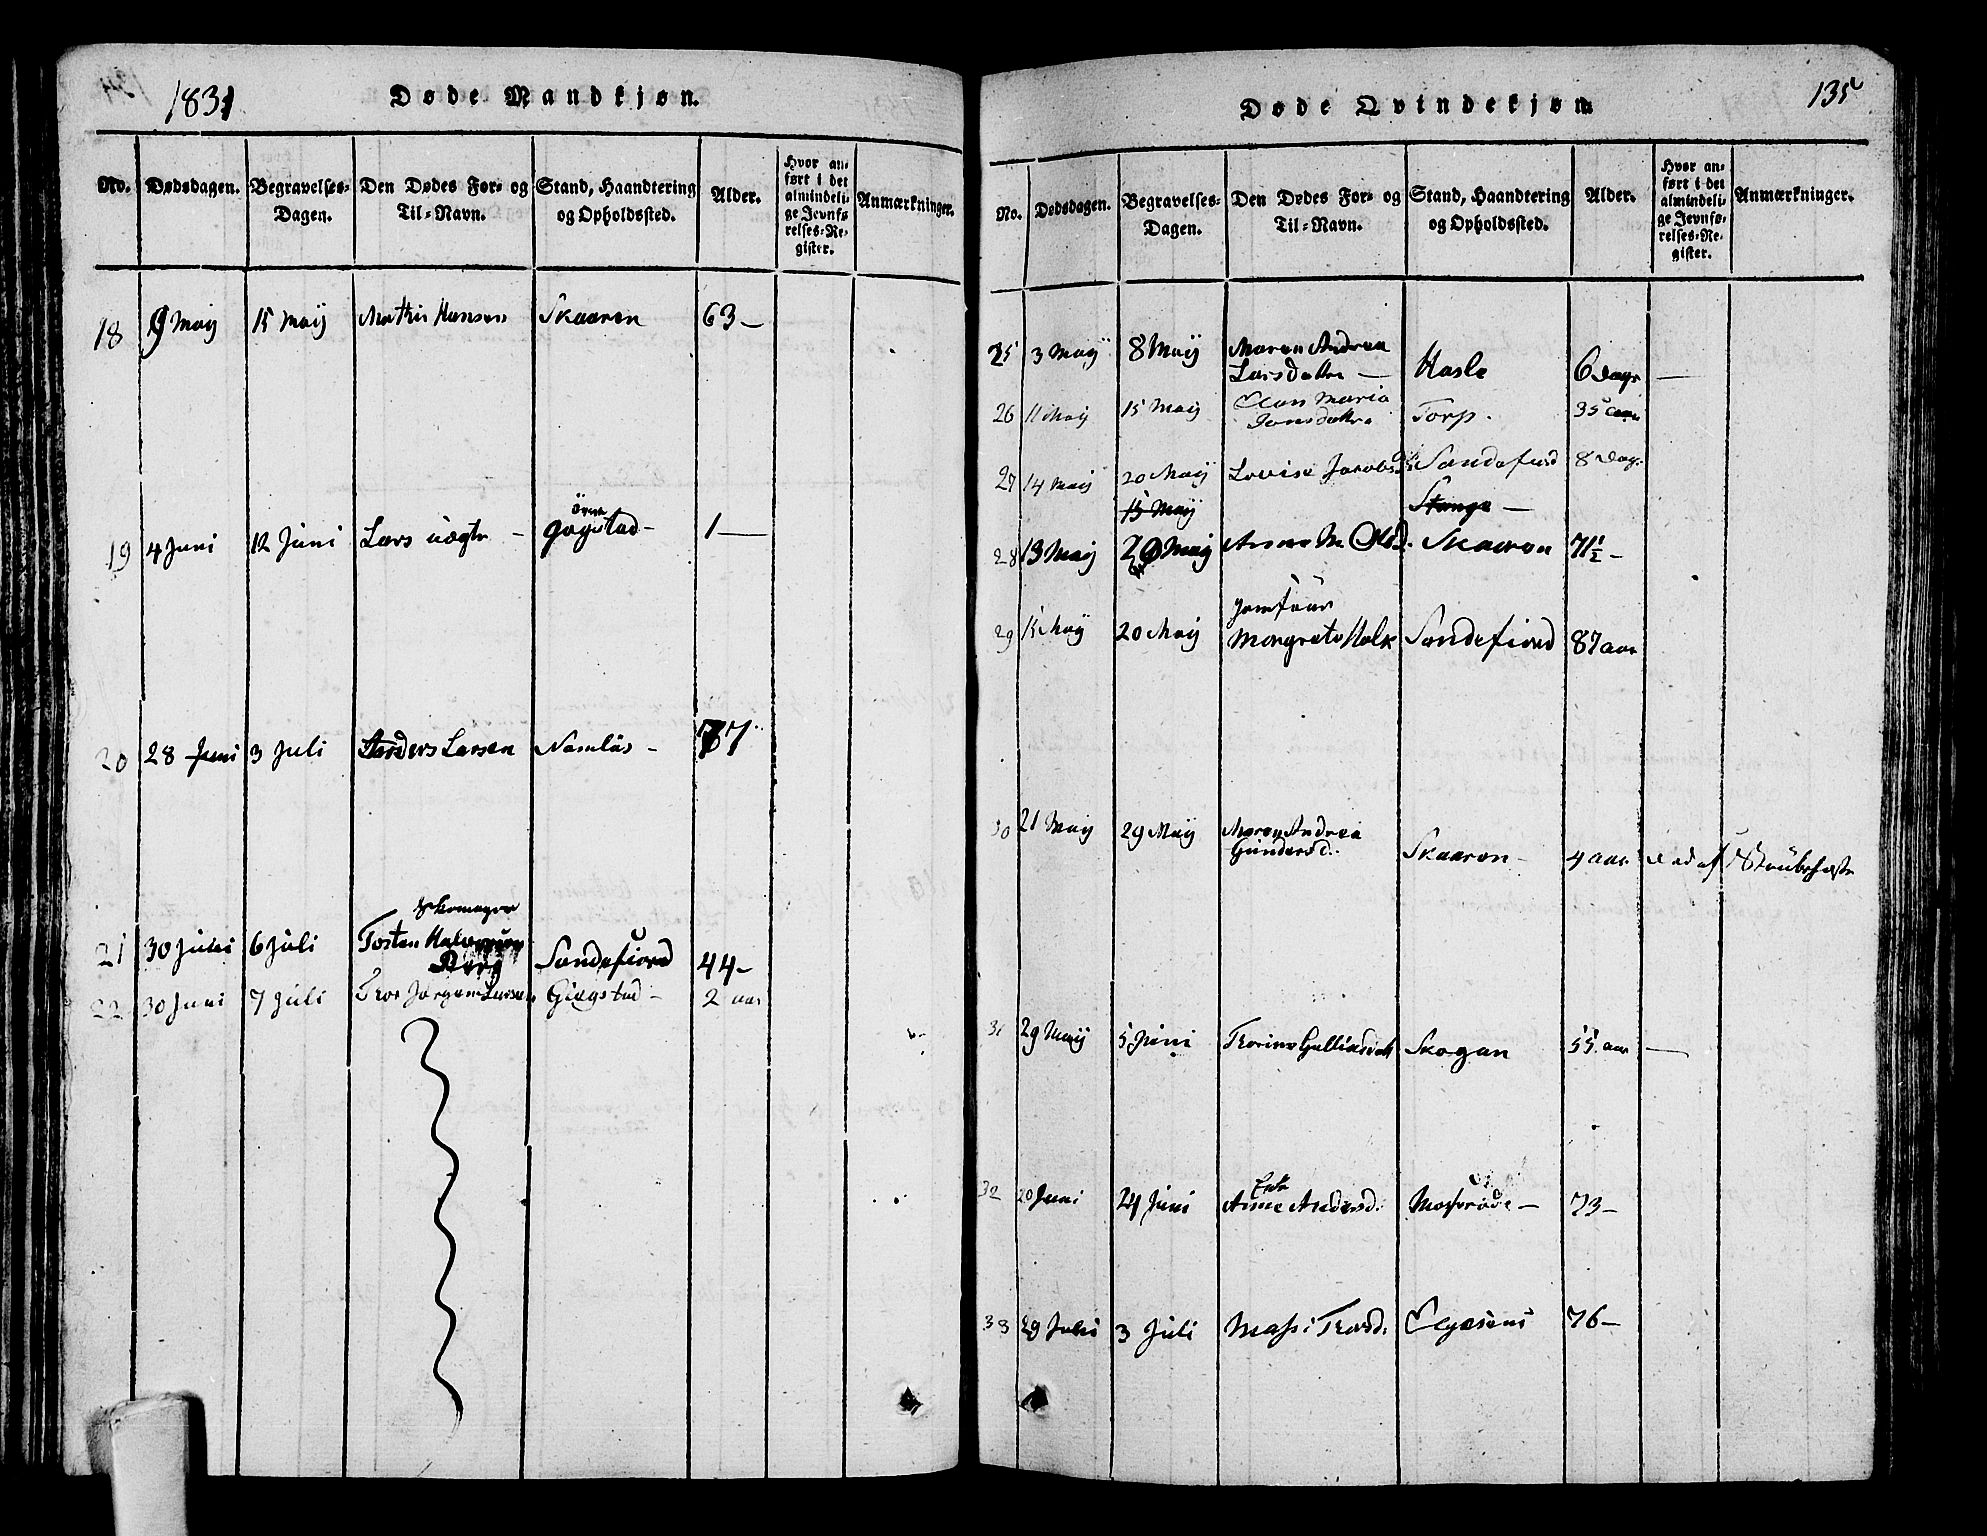 1831 Døde Mandkjøn.
No. Dødsdagen. Begravelses-Dagen. Den Dødes For- og Til-Navn. Stand, Haandtering og Opholdssted. Alder. Hvor anført i det almindelige Jevnførelses-Register. Anmærkninger.
18 9 Maij 15 Maij Mathis Hansen Skaaren 63 —
øvre
19 4 Juni 12 Juni Lars — Gogstad — 1 —
20 28 Juni 3 Juli Anders Larsen Namløs — 77
Skomager
21 30 Juni 6 Juli Tosten Halvorsen Sandefiord 44 —
Berg
22 30 Juni 7 Juli Thor Jørgen Larsen Giegstad — 2 aar
Døde Qvindekjøn 135
No. Dødsdagen. Begravelses-Dagen. Den Dødes For- og Til-Navn. Stand, Haandtering og Opholdssted. Alder. Hvor anført i det almindelige Jevnførelses-Register. Anmærkninger.
25 3 Maij 8 Maij Maren Andrea
Larsdatter — Hasle 6 Dage —
26 11 Maij 15 Maij Elen Maria Torp. 35 aar
27 14 Maij 20 Maij Lovise Jacobsd. Sandefiord 8 Dage
15 Maij Stange —
28 13 Maij 20 Maij Anne M. Olsd. Skaaron 71½ —
Jomfrue
29 15 Maij 20 Maij Margrete Holk Sandefiord 87 aar
30 21 Maij 29 Maij Maren Andrea
Gundersd. Skaaron — 4 aar død af Strubehoste
31 29 Maij 5 Juni Thorine Gulliksdatt Skogan 55 aar —
Enke
32 20 Juni 24 Juni Anne Andersd. Moserøde — 73 —
33 29 Juni 3 Juli Massi Thord. 76 —